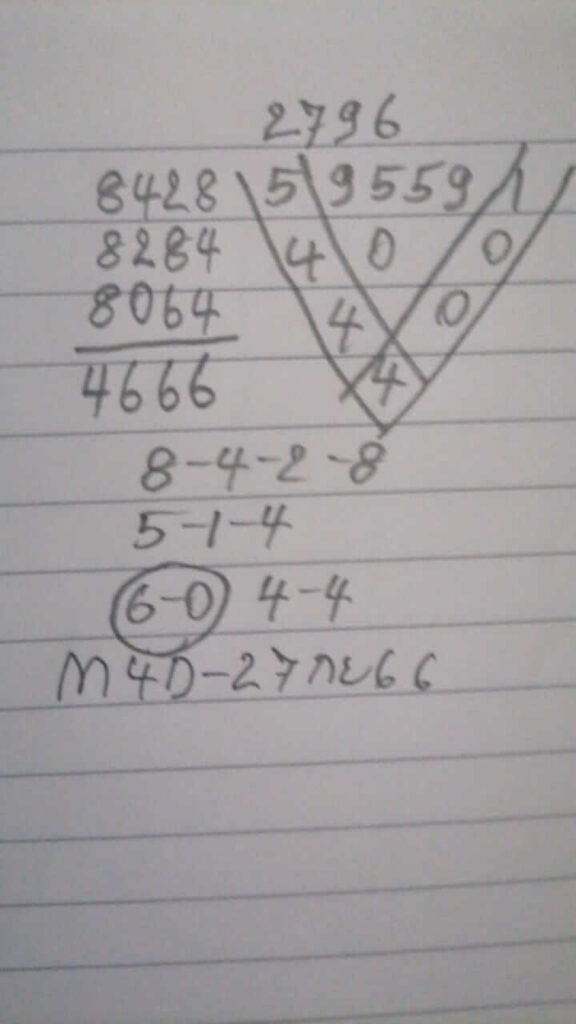 2796
8428 5 9559 1
8284 4 0 0
8064 4 0
4666 4
8-4-2-8
5-1-4
6-0 4-4
M4D-27 66